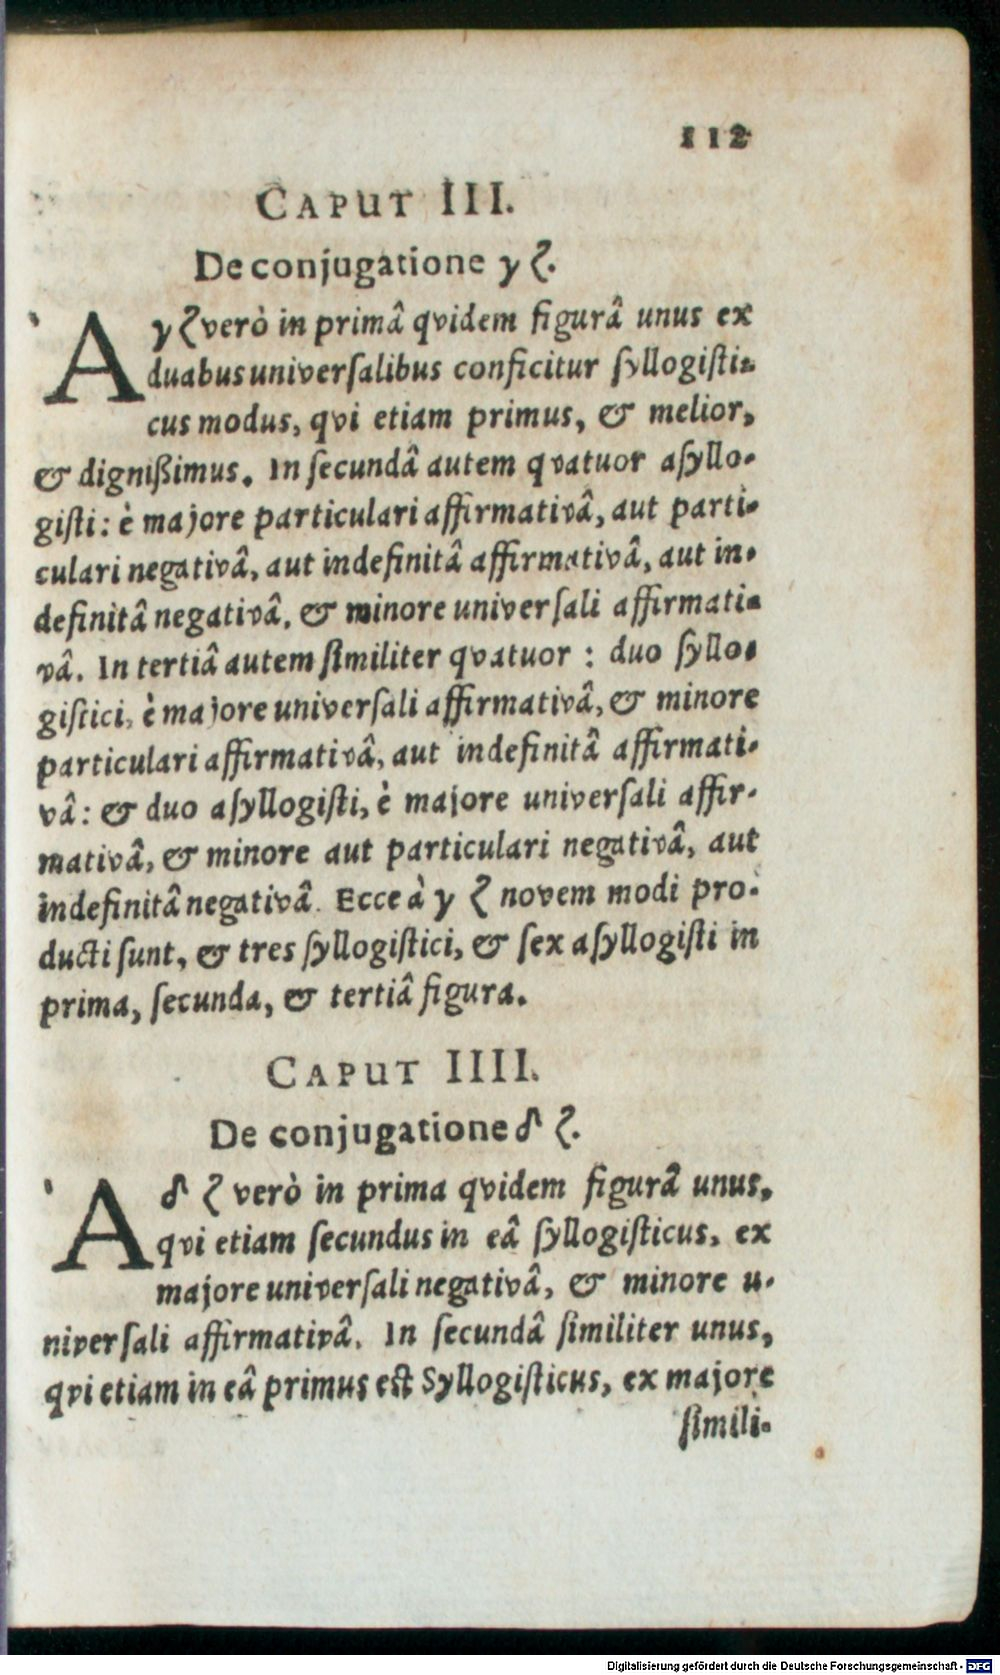 112
CAPUT III.
De conjugatione γ ζ.
`A γ ζ verò in primâ qvidem figurâ unus ex
duabus universalibus conficitur syllogisti-
cus modus, qvi etiam primus, & melior,
& dignißimus. In secundâ autem qvatuor asyllo-
gisti: è majore particulari affirmativâ, aut parti-
culari negativâ, aut indefinitâ affirmativâ, aut in-
definitâ negativâ, & minore universali affirmati-
vâ. In tertiâ autem similiter qvatuor : duo syllo-
gistici, è majore universali affirmativâ, & minore
particulari affirmativâ, aut indefinitâ affirmati-
vâ: & duo asyllogisti, è majore universali affir-
mativâ, & minore aut particulari negativâ, aut
indefinitâ negativâ. Ecce à γ ζ novem modi pro-
ducti sunt, & tres syllogistici, & sex asyllogisti in
prima, secunda, & tertiâ figura.
CAPUT IIII.
De conjugatione δ ζ.
`A δ ζ verò in prima qvidem figurâ unus,
qvi etiam secundus in eâ syllogisticus, ex
majore universali negativâ, & minore u-
niversali affirmativâ. In secundâ similiter unus,
qvi etiam in eâ primus est Syllogisticus, ex majore
simili-
Digitalisierung gefördert durch die Deutsche Forschungsgemeinschaft - DFG